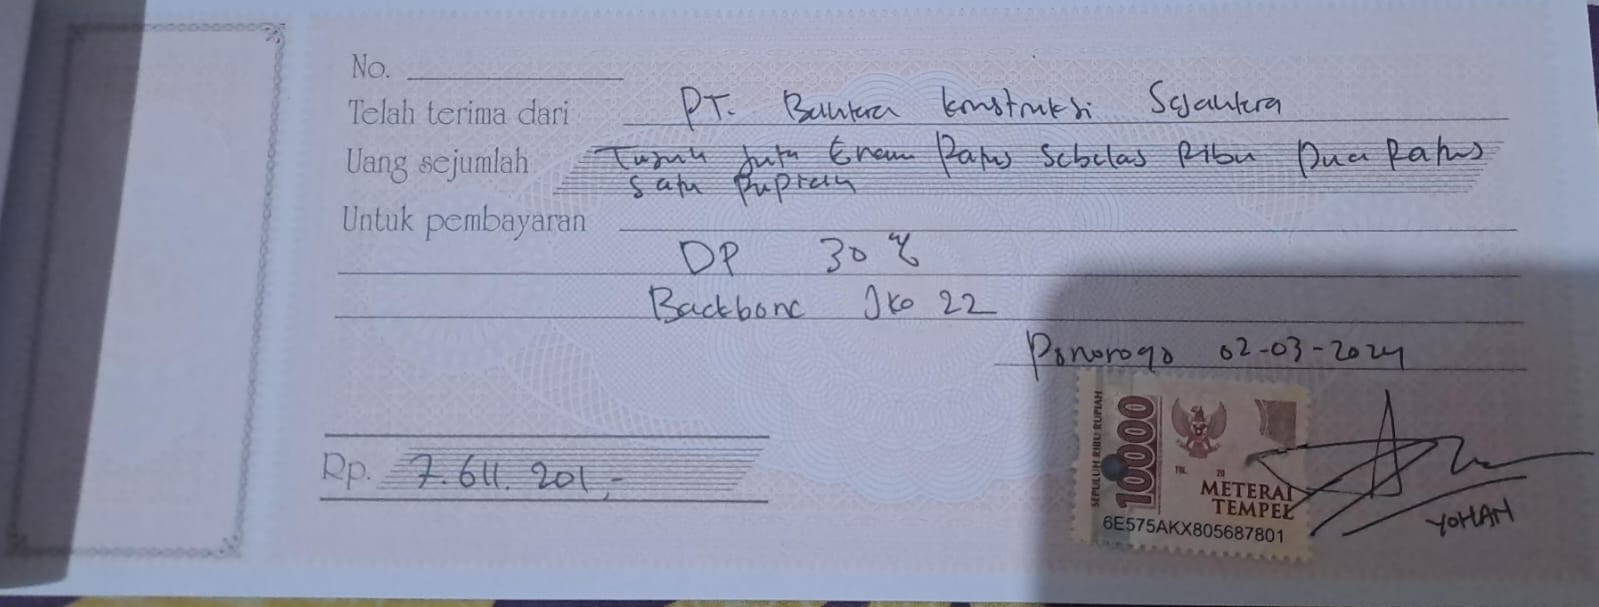 No.
Telah terima dari PT. Bantera Konstruksi Sejantera
Uang sejumlah Tujuh Juta Enam Ratus Sebelas Ribu Dua Ratus
Satu Rupiah
Untuk pembayaran
DP 30 %
Backbone Jko 22
Ponorogo 02-03-2024
Rp. 7.611.201,-
SEPULUH RIBU RUPIAH
10000
TGL. 20
METERAI
TEMPEL
6E575AKX805687801
YOHAN